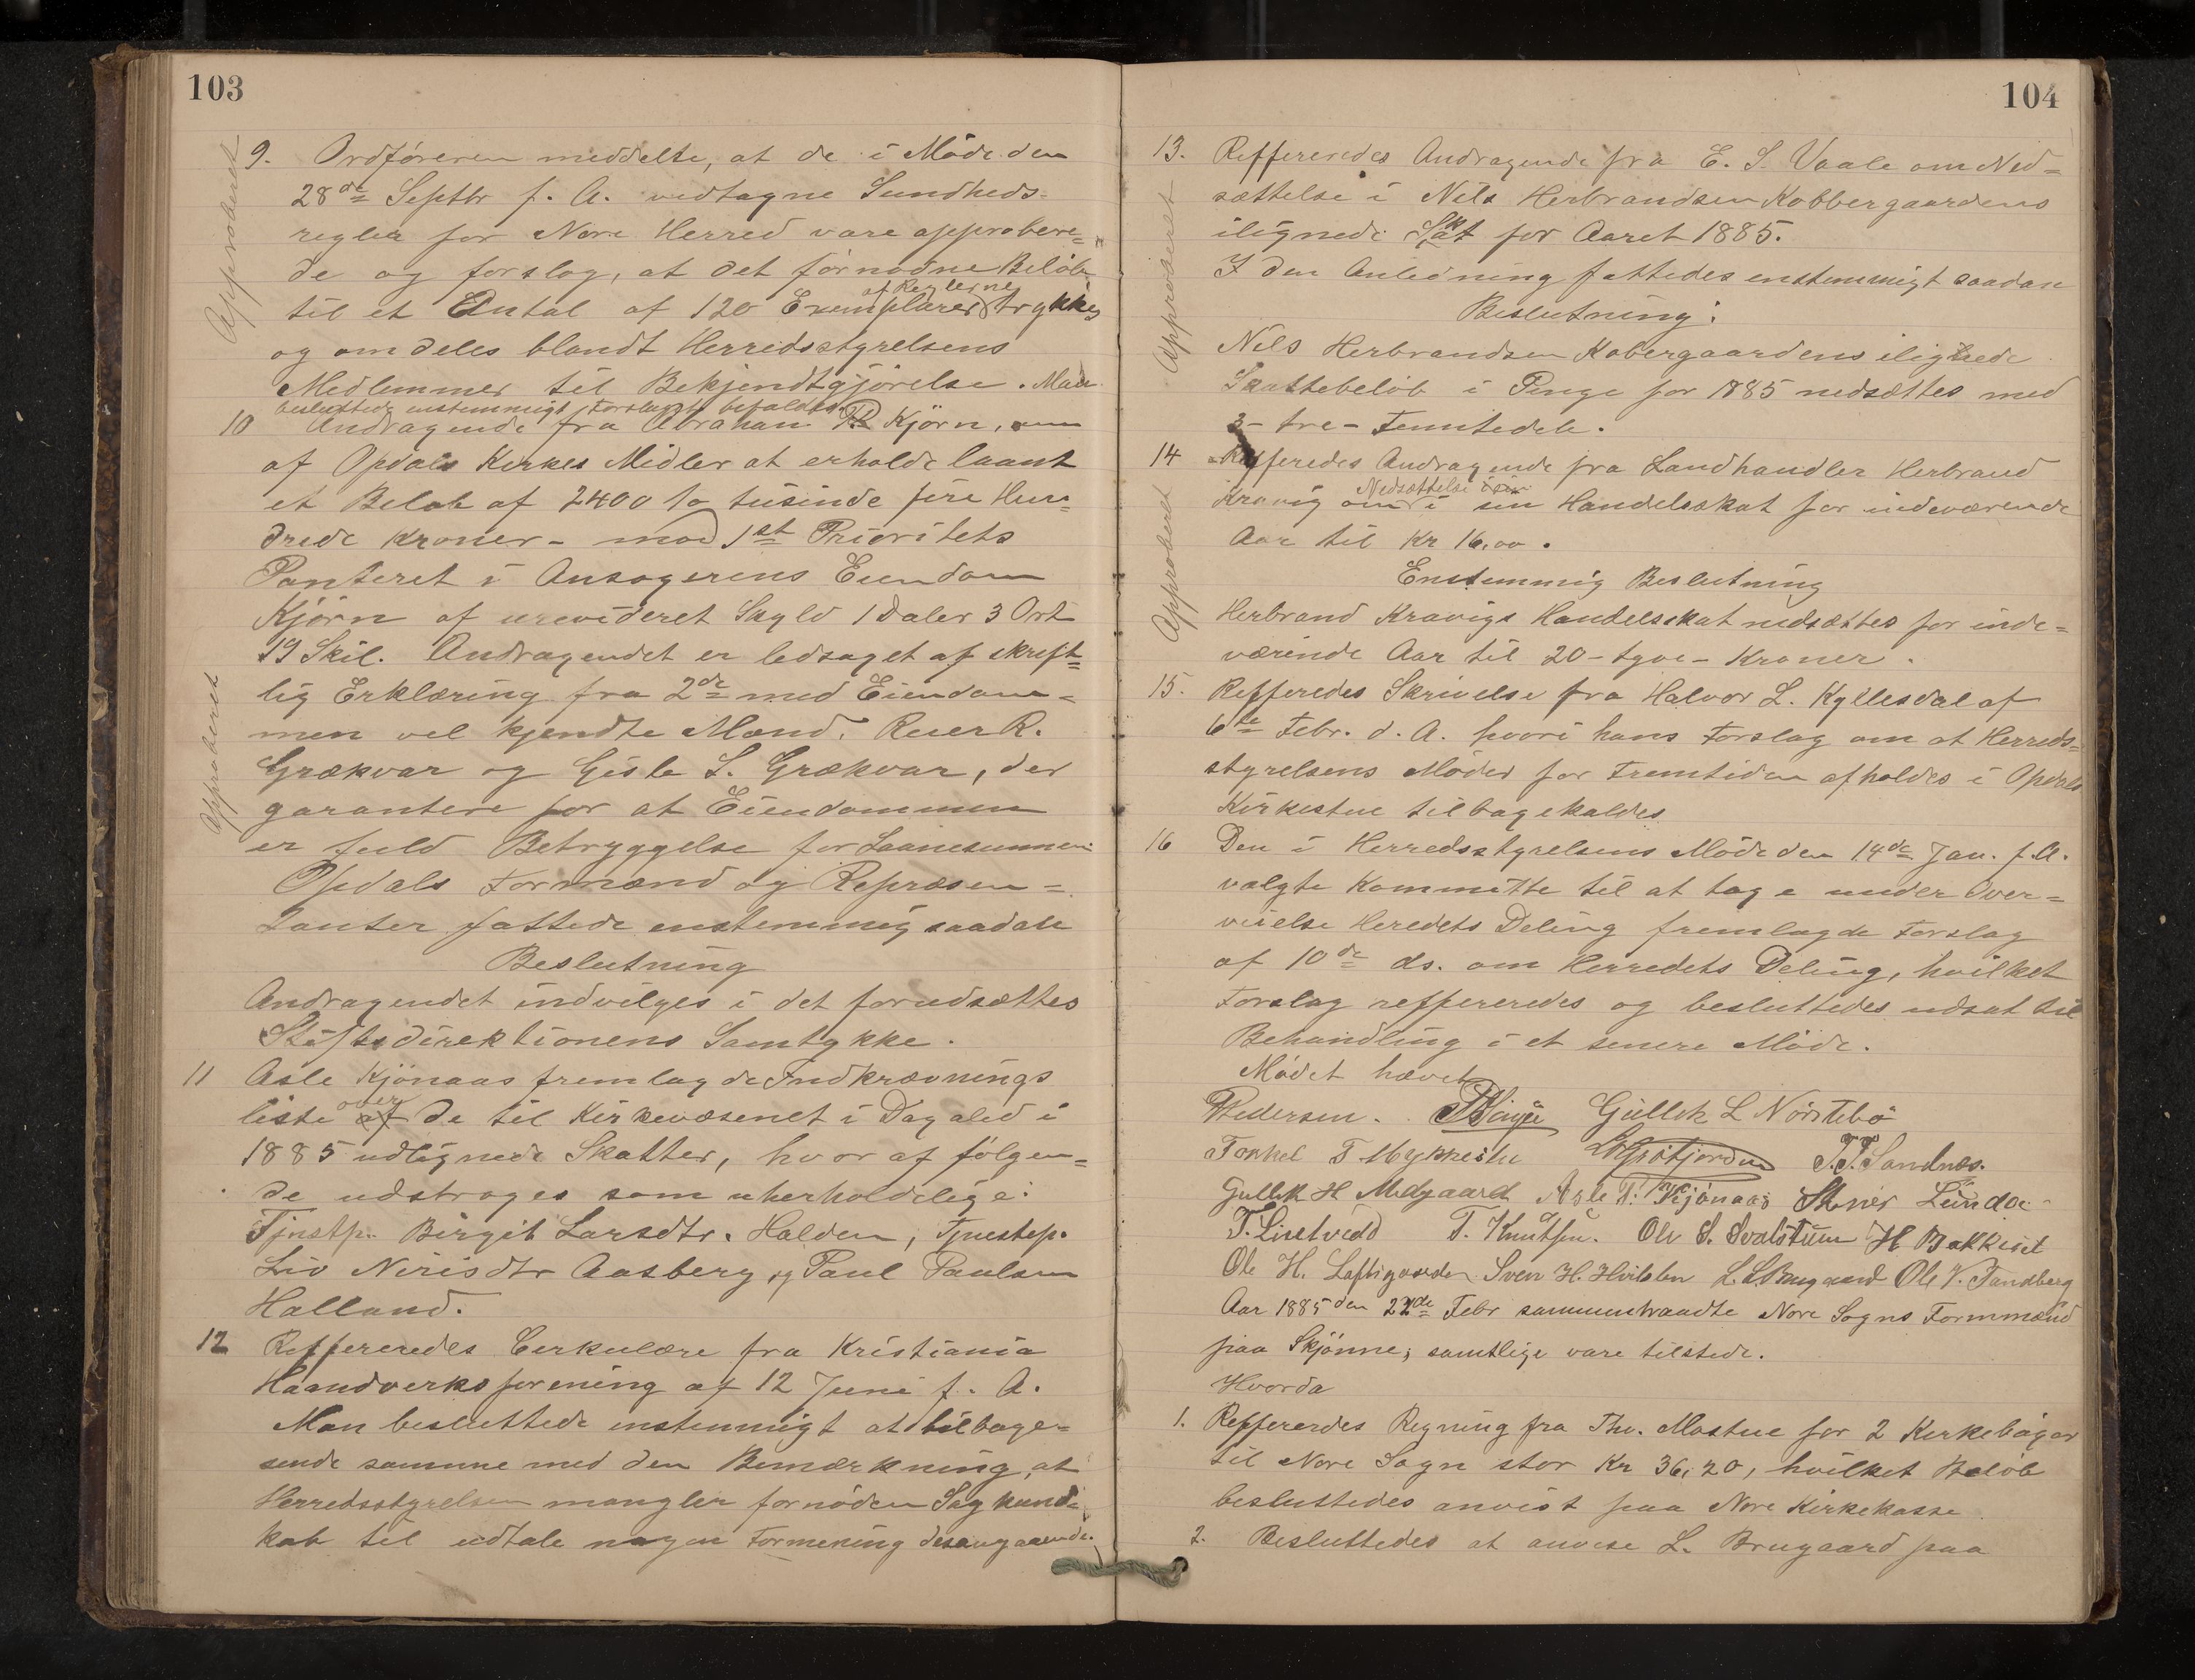 103
9. Ordföreren meddelte, at de i Möde den
28de Septbr f. A. vedtagne Sundheds-
regler for Nore Herred vare approbere=
de og forslog, at det fornødne Beløb
til et Antal af 120 Exemplarer af Reglerne trykkes
og omdeles blandt Herredsstyrelsens
Medlemmer til Bekjendtgjörelse. Man
besluttede enstemmigt Forslaget befaldt
10 Andragende fra Abraham Kjörn, om
af Opdals Kirkes Midler at erholde laant
et Beløb af 2400 to tusinde fire Hun=
drede Kroner - mod 1st Prioritets
Panteret i Ansøgerens Eiendom
Kjörn af urevideret Skyld 1 Daler 3 Ort
19 Skil. Andragendet er ledsaget af skrift=
lig Erklæring fra 2de med Eiendom=
men vel kjendte Mænd, Reier R.
Grækvar og Gisle L. Grækvar, der
garantere for at Eiendommen
er fuld Betryggelse for Laanesummen
Opdals Formænd og Repræsen=
tanter fattede enstemmig saadan
Beslutning
Andragendet indvilges i det forudsættes
Stiftsdirektionens Samtykke.
11 Asle Kjönaas fremlagde Indkrævnings
liste over de til Kirkevæsenet i Dagalid i
1885 udlignede Skatter, hvor af fölgen=
de udstroges som uherholdelige:
Tjnstp. Birgit Larsdtr. Halden, Tjnestep.
Liv Nirisdtr Aasberg, og Paul Paulsen
Halland.
12 Reffereredes Cirkulære fra Kristiania
Haandverksforening af 12 Juni f. A.
Man besluttede enstemmigt at tilbage=
sende samme med den Bemærkning, at
Herredsstyrelsen mangler fornöden Sagkund=
kab til udtale nogen Formening desangaaende.
Approberet
Approberet
104
13. Reffereredes Andragende fra E. S. Vaale om Ned=
sættelse i Nils Herbrandsen Kobbergaardens
ilignede Skat for Aaret 1885.
I den Anledning fattedes enstemmigt saadan
Beslutning:
Nils Herbrandsen Kobergaardens ilignede
Skattebeløb i Penge for 1885 nedsættes med
3 - tre - Femtedele.
14 Refferedes Andragende fra Landhandler Herbrand
Kravig om Nedsættelse i sin Handelsskat for indeværende
Aar til Kr 16,00.
Enstemmig Beslutning
Herbrand Kravigs Handelsskat nedsættes for inde=
værende Aar til 20 - tyve - Kroner.
15. Refferedes Skrivelse fra Halvor L. Kyllesdal af
6te Febr. d. A. hvori hans Forslag om at Herreds=
styrelsens Möder for Fremtiden afholdes i Opdals
Kirkestue tilbagekaldes
16 Den i Herredsstyrelsens Möde den 14de Jan. f. A.
valgte Kommitte til at tage under Over=
veielse Heredets Deling fremlagde Forslag
af 10de ds. om Herredets Deling, hvilket
Forslag reffereredes og besluttedes udsat til
Behandling i et senere Möde.
Mödet hævet
Pedersen. Gullek L Nörstebö
Torkel T Mykkestu T.T. Sandnæs.
Gullik H Medgaard Asle T. Kjönaas Stener Lunde
T. Lisetvedd T. Knutsen. Ole S. Svalstuen H Bakkeset
Ole H. Loftsgaarden Sven H. Hvilelen L. L. Brugaard Ole V. Tandberg
Aar 1885 den 22de Febr sammentraadte Nore Sogns Formmænd
paa Skjönne; samtlige vare tilstede.
Hvorda
1. Reffererdes Regning fra Thv. Mostue for 2 Kirkebøger
til Nore Sogn stor Kr 36,20, hvilket Beløb
besluttedes anvist paa Nore Kirkekasse
2. Besluttedes at anvise L. Brugaard paa
Approberet
Approberet